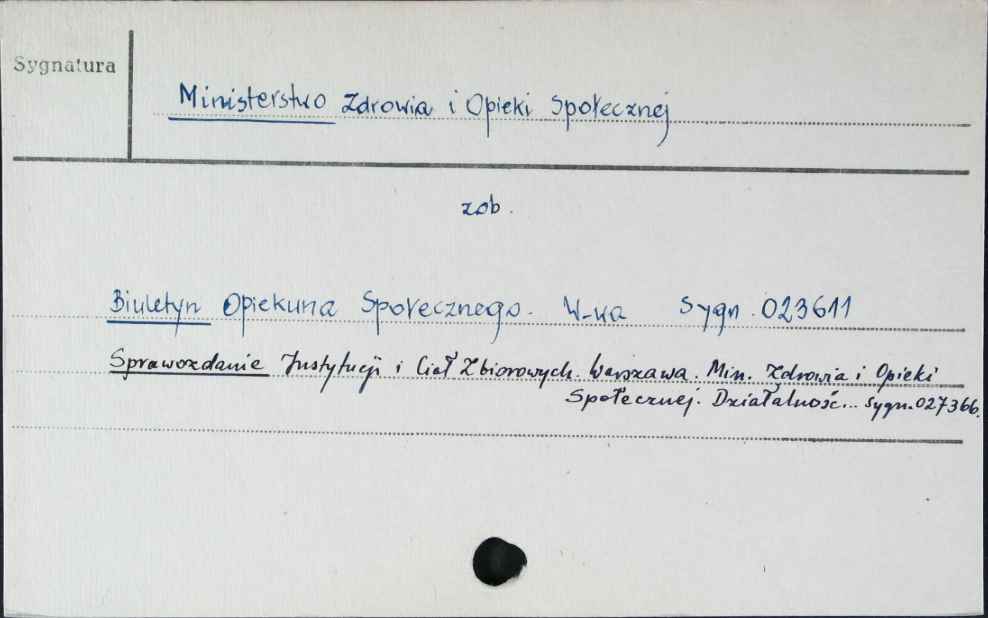 Sygnatura
Ministerstwo Zdrowia i Opieki Społecznej
zob.
Biuletyn Opiekuna Społecznego. W-wa Sygn. 023611
Sprawozdanie Instytucji i Ciał Zbiorowych. Warszawa. Min. Zdrowia i Opieki
Społecznej. Działalność... sygn. 027366.